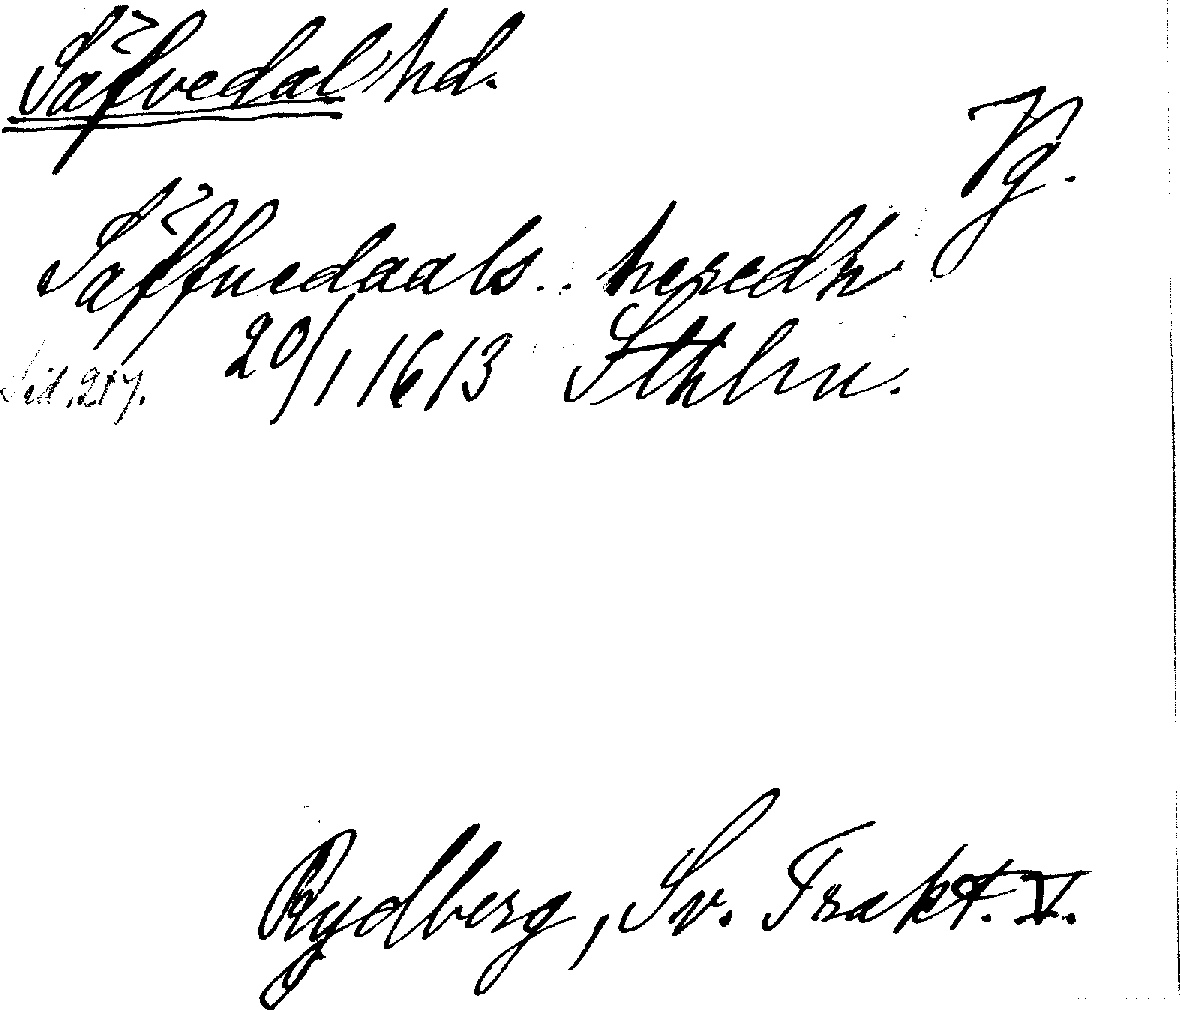 Säfvedal hd.
Vg.
Säffuedaals .. heredh
Sid. 217. 20/1 1613 Sthlm.
Rydberg, Sv. Trakt. V.